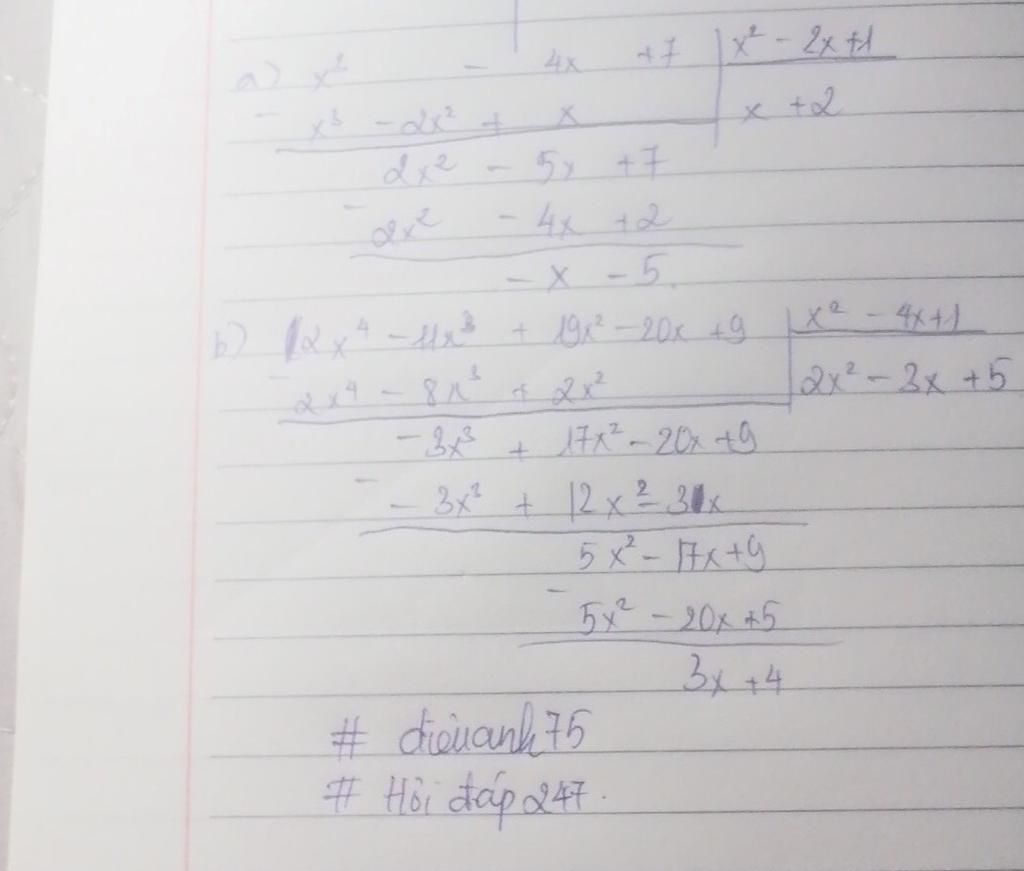 a) x³ - 4x +7 | x² - 2x +1
- x³ - 2x² + x | x + 2
2x² - 5x + 7
- 2x² - 4x + 2
- x - 5.
b) 2x⁴ - 11x³ + 19x² - 20x + 9 | x² - 4x + 1
- 2x⁴ - 8x³ + 2x² | 2x² - 3x + 5
- 3x³ + 17x² - 20x + 9
- - 3x³ + 12x² - 3x
5x² - 17x + 9
- 5x² - 20x + 5
3x + 4
# điêuanh75
# Hỏi đáp 247.